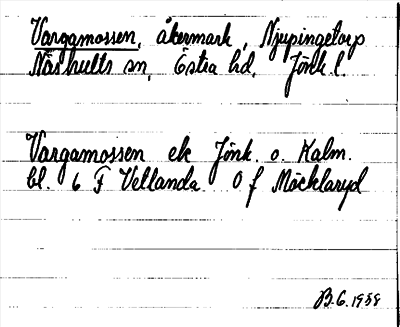 Vargamossen, åkermark, Njupingetorp
Näshults sn, Östra hd, Jönk. l.
Vargamossen ek Jönk. o. Kalm.
bl. 6 F Vetlanda O f Möcklaryd
B.G. 1938